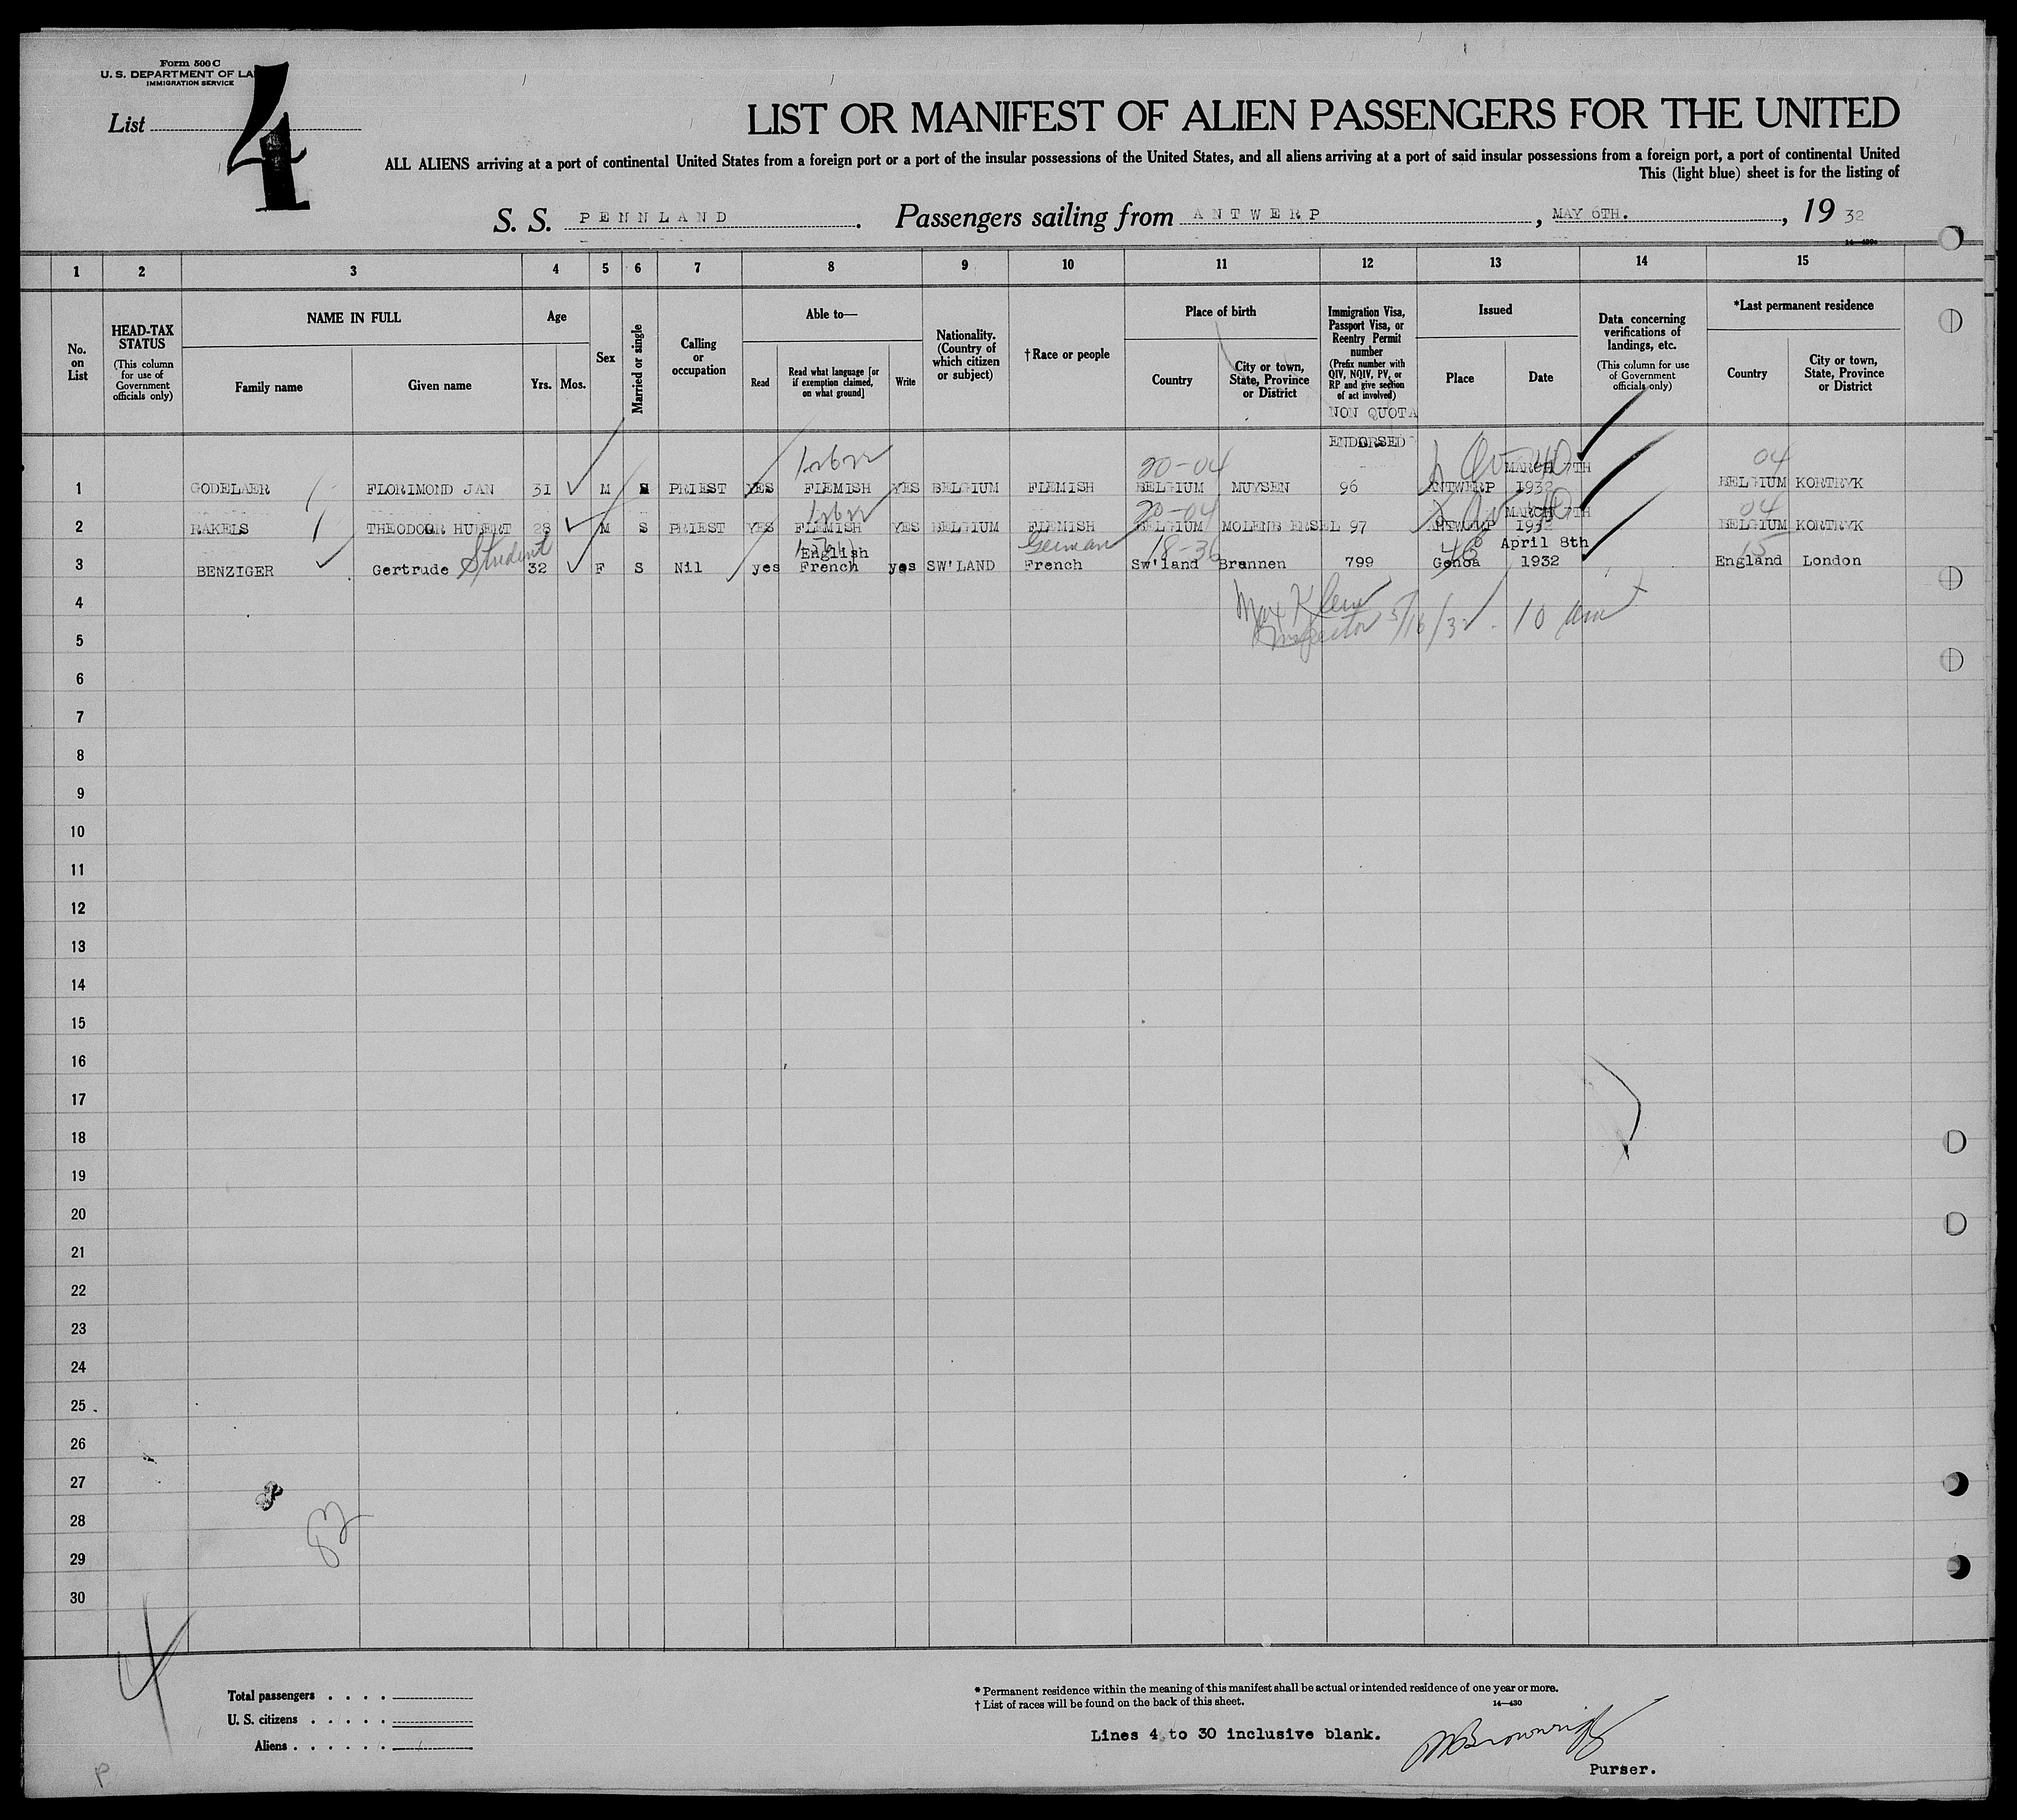 Form 500 C
U. S. DEPARTMENT OF LA
IMMIGRATION SERVICE
List 4
LIST OR MANIFEST OF ALIEN PASSENGERS FOR THE UNITED
ALL ALIENS arriving at a port of continental United States from a foreign port or a port of the insular possessions of the United States, and all aliens arriving at a port of said insular possessions from a foreign port, a port of continental United
This (light blue) sheet is for the listing of
S. S. PENNLAND. Passengers sailing from ANTWERP, MAY 6TH., 1932
14—430
1 2 3 4 5 6 7 8 9 10 11 12 13 14 15
No. on List
HEAD-TAX STATUS
(This column for use of Government officials only)
NAME IN FULL
Family name Given name
Age
Yrs. Mos.
Sex
Married or single
Calling or occupation
Able to—
Read
Read what language [or if exemption claimed, on what ground]
Write
Nationality. (Country of which citizen or subject)
† Race or people
Place of birth
Country
City or town, State, Province or District
Immigration Visa, Passport Visa, or Reentry Permit number
(Prefix number with QIV, NQIV, PV, or RP and give section of act involved)
NON QUOTA
ENDORSED
Issued
Place Date
Data concerning verifications of landings, etc.
(This column for use of Government officials only)
*Last permanent residence
Country
City or town, State, Province or District
20-04 04
MARCH 7TH
1 GODELAER FLORIMOND JAN 31 M S PRIEST YES FLEMISH YES BELGIUM FLEMISH BELGIUM MUYSEN 96 ANTWERP 1932 BELGIUM KORTRYK
20-04 04
MARCH 7TH
2 RAKELS THEODOOR HUBERT 28 M S PRIEST YES FLEMISH YES BELGIUM FLEMISH BELGIUM MOLENB ERSEL 97 ANTWERP 1932 BELGIUM KORTRYK
Student English German 18-36 46 April 8th 15
3 BENZIGER Gertrude 32 F S Nil yes French yes SW'LAND French Sw'land Brennen 799 Genoa 1932 England London
4
Max Klein
Inspector 5/16/32 - 10 am
5
6
7
8
9
10
11
12
13
14
15
16
17
18
19
20
21
22
23
24
25
26
27
28
29
30
4
Total passengers
U. S. citizens
Aliens
* Permanent residence within the meaning of this manifest shall be actual or intended residence of one year or more.
† List of races will be found on the back of this sheet.
14—430
Lines 4 to 30 inclusive blank.
Purser.
P